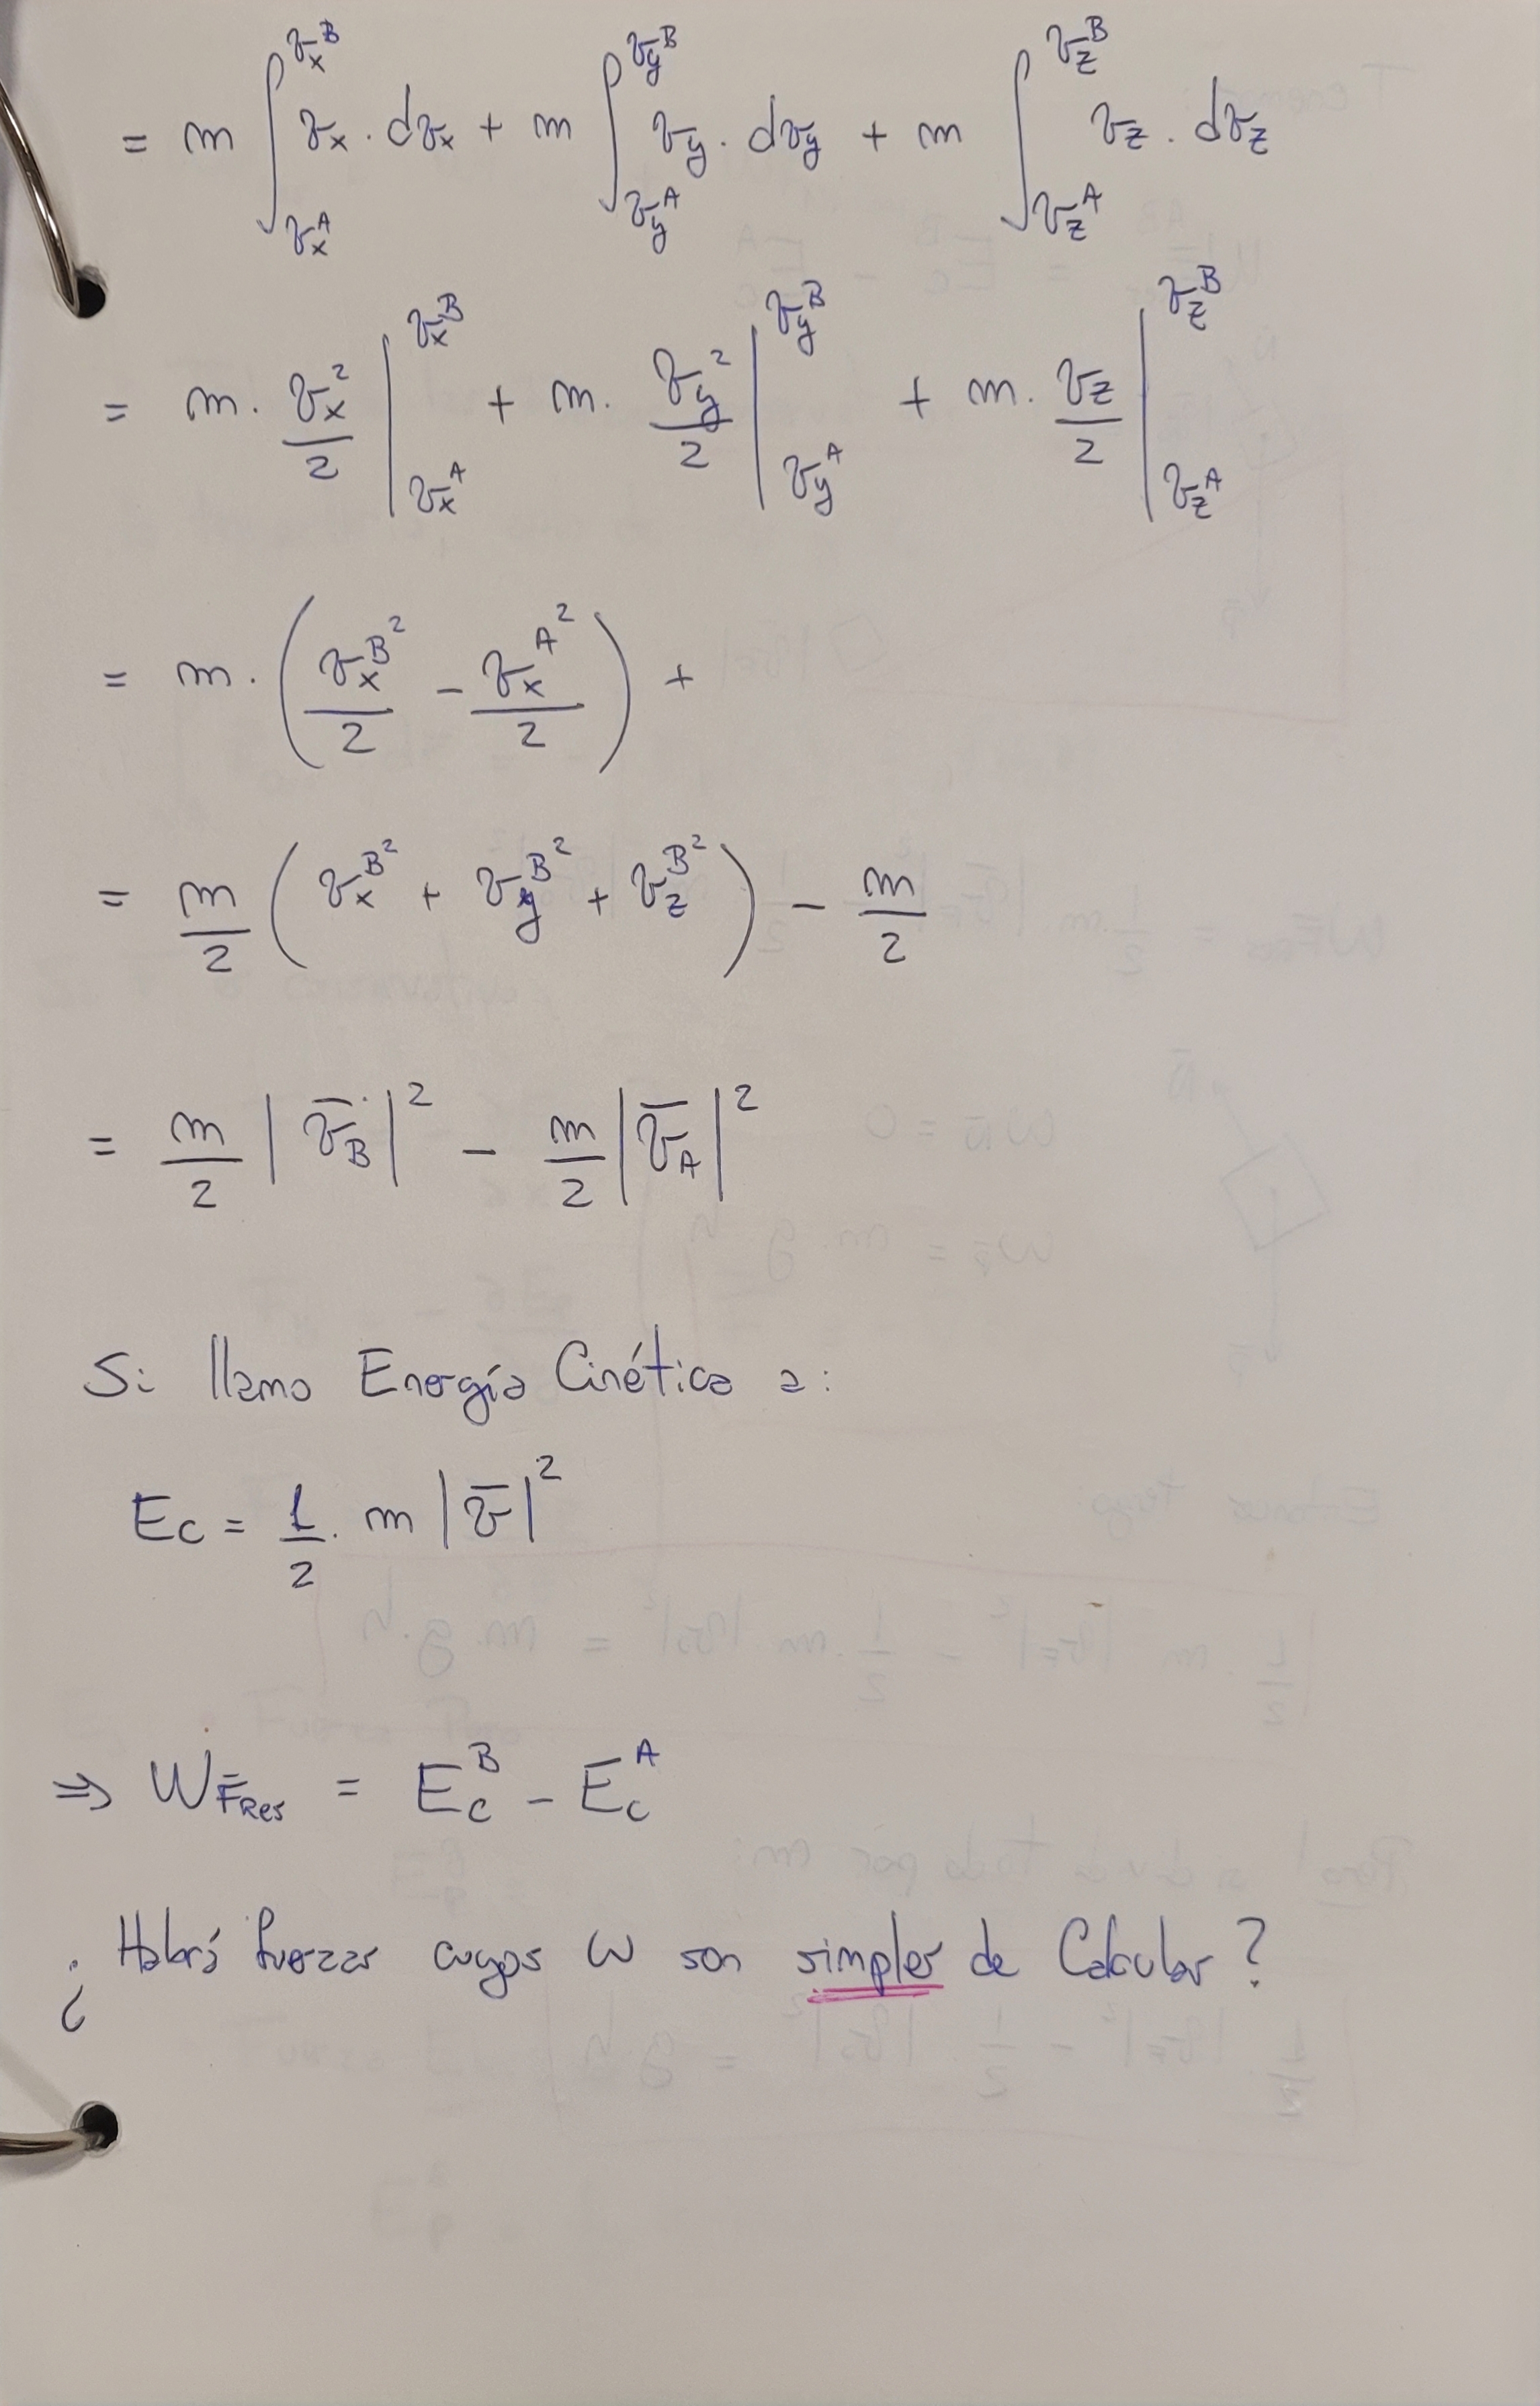 = m ∫_{v_x^A}^{v_x^B} v_x . dv_x + m ∫_{v_y^A}^{v_y^B} v_y . dv_y + m ∫_{v_z^A}^{v_z^B} v_z . dv_z
= m . v_x^2/2 |_{v_x^A}^{v_x^B} + m . v_y^2/2 |_{v_y^A}^{v_y^B} + m . v_z/2 |_{v_z^A}^{v_z^B}
= m . ( v_x^{B^2}/2 - v_x^{A^2}/2 ) +
= m/2 ( v_x^{B^2} + v_y^{B^2} + v_z^{B^2} ) - m/2
= m/2 | v̄_B |^2 - m/2 | v̄_A |^2
Si llamo Energía Cinética a:
Ec = 1/2 . m | v̄ |^2
⇒ W_{F̄Res} = E_c^B - E_c^A
¿ Habrá fuerzas cuyos W son simples de Calcular ?